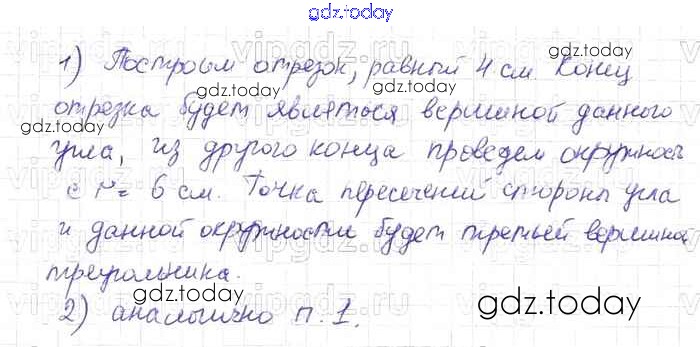 gdz.today
1) Построим отрезок, равный 4 см. Конец
отрезка будет являться вершиной данного
угла, из другого конца проведем окружность
с r = 6 см. Точка пересечений стороны угла
и данной окружности будет третьей вершина
треугольника.
2) аналогично п. 1.
gdz.today
gdz.today
gdz.today
gdz.today
gdz.today
gdz.today
gdz.today